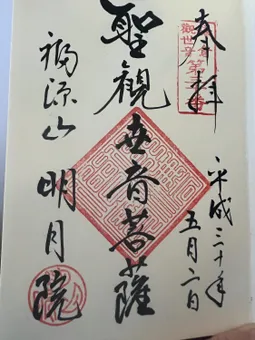 奉拝
平成三十年
五月二日
聖観世音菩薩
福源山 明月院